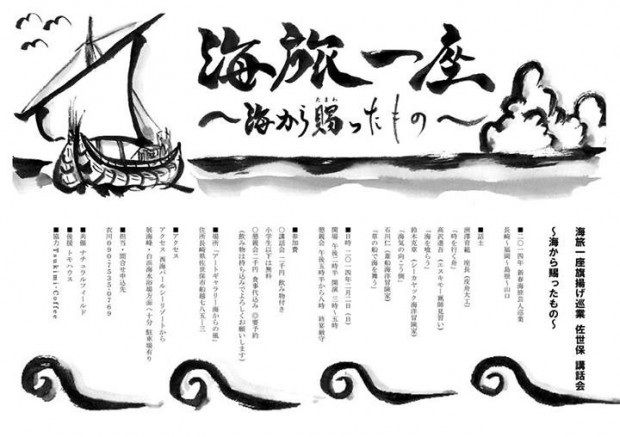 海旅一座
〜海から賜ったもの〜
たまわ
海旅一座旗揚げ巡業 佐世保 講話会
〜海から賜ったもの〜
■二〇一四年 新春海旅芸人巡業
長崎〜福岡〜島根〜山口
■話士
洲澤育範 座長(皮舟大工)
「時を行く舟」
高沢進吾(エスキモー猟師見習い)
「海を喰らう」
鈴木克章(シーカヤック海洋冒険家)
「海気の向こう側」
石川仁(葦船海洋冒険家)
「草の船で海を渡う」
■日時 二〇一四年二月二日(日)
開場 午後二時半 開演 三時〜五時
懇親会 午後五時半から八時 終宴厳守
■参加費
〇講話会 二千円 飲み物付き
小学生以下は無料
〇懇親会 二千円 食事代込み ◎要予約
(飲み物は持ち込みでよろしくお願いします)
■場所「アートギャラリー海からの風」
住所 長崎県佐世保市船越七八五−三
■アクセス
アクセス 西海パールシーリゾートから
展海峰・白浜海水浴場方面へ十分 駐車場有り
■担当・問合せ申込先
衣川 090-7535-0769
■共催 ナチュラルフィールド
■後援 トモハウス
■協力 Tsukimi-Coffee